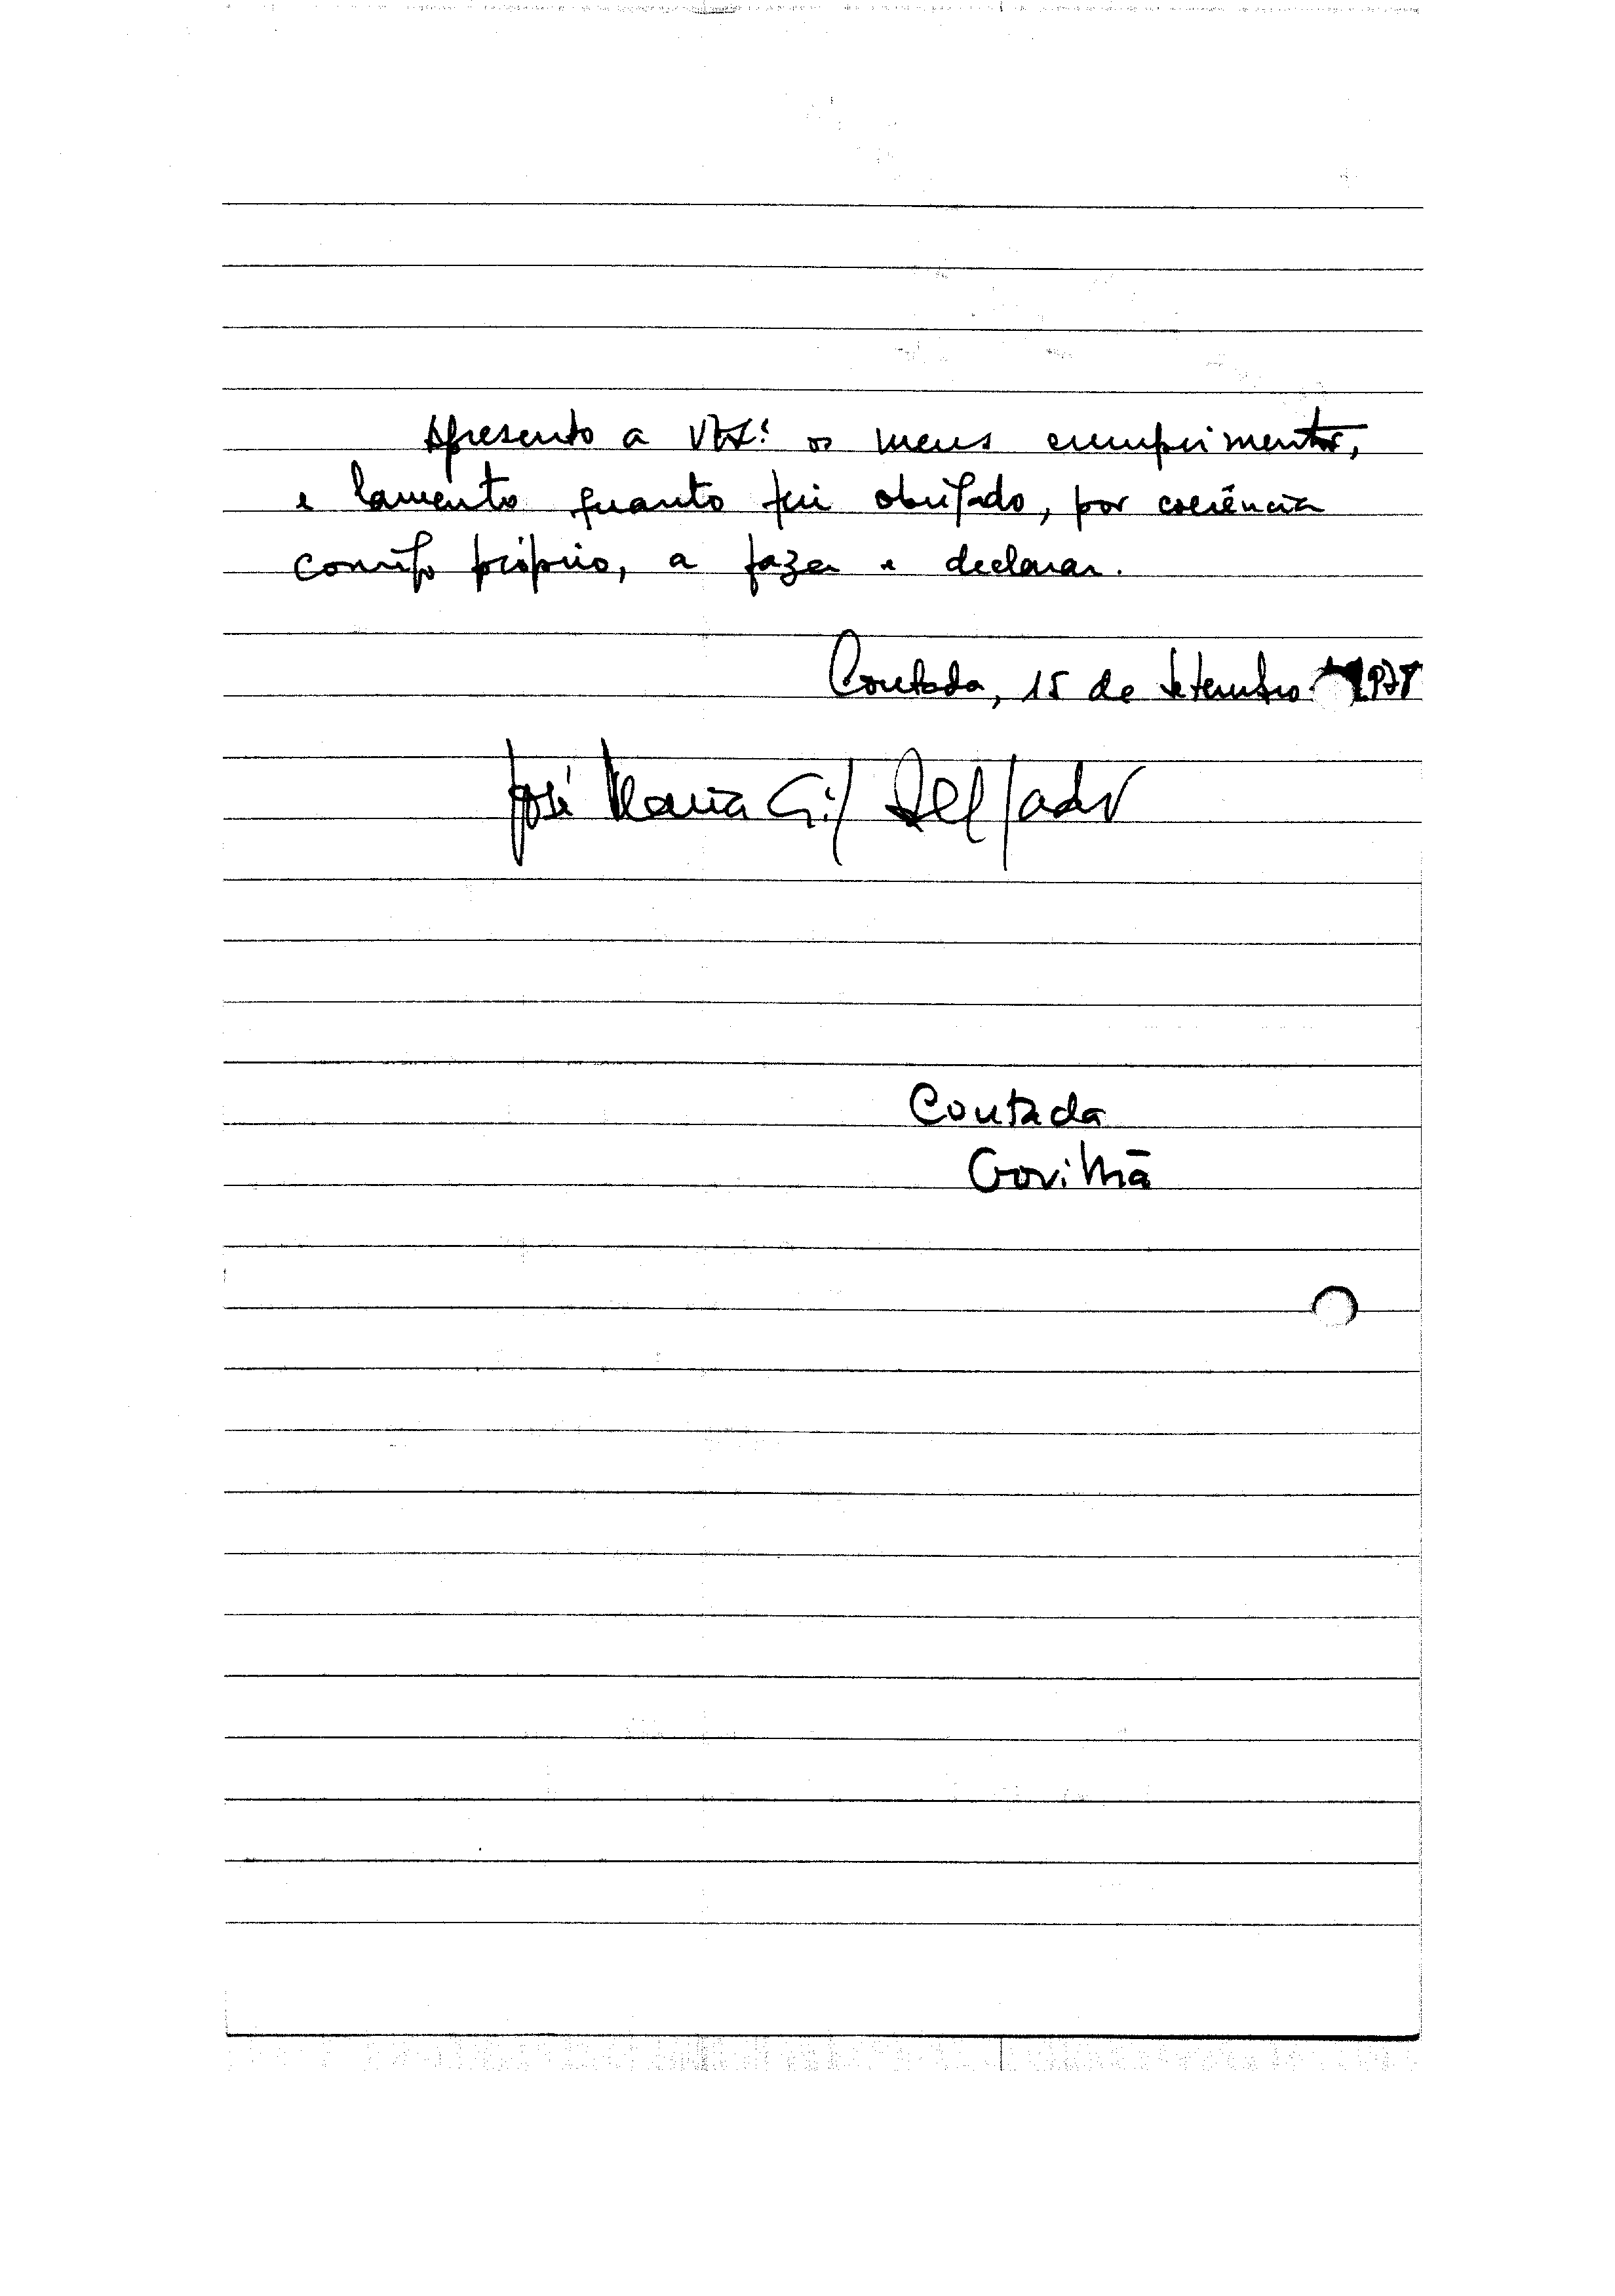 Apresento a V. Ex.ª os meus cumprimentos,
e lamento quanto fui obrigado, por coerência
comigo próprio, a fazer e declarar.
Coutada, 15 de Setembro 1978
José Maria Gil Delgado
Coutada
Covilhã